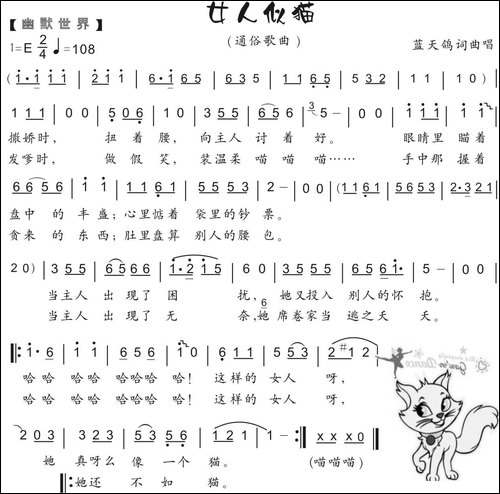 女人似猫
【幽默世界】
1=E 2/4 ♩=108
(通俗歌曲)
蓝天鸽词曲唱
(1·1 1 1 | 2 1 1 | 6·1 6 5 | 3 5 1 6 5 | 5 3 2 | 1 1 | 1 0 |
1 1 1 | 0 0 | 5 0 6 | 0 0 | 1 0 5 5 | 1 0 5 6 | 3 5 - | 0 0 | 1 1 1 | 1 0
撒娇时， 扭着腰，向主人讨着好。 眼睛里瞄着
发嗲时， 做假笑，装温柔喵喵喵…… 手中那握着
6 6 5 6 | 1 1 | 1 1 6 1 | 5 6 5 3 | 2 - | 0 0 | (1 1 6 1 | 5 6 5 3 | 2·3 2 1
盘中的丰盛；心里惦着袋里的钞票。
贪来的东西；肚里盘算别人的腰包。
2 0) | 3 5 5 | 6 5 6 6 | 1·2 1 5 | 6 0 | 3 5 5 5 | 6 5 6 1· | 5 - | 0 0 |
当主人出现了困扰，她又投入别人的怀抱。
当主人出现了无奈，她席卷家当逃之夭夭。
‖: 1·6 | 1 1 | 5 5 6 | 1 0 | 6 1 1 | 5 5 3 | 2 #1 2 |
哈哈哈哈哈哈哈哈！这样的女人呀，
哈哈哈哈哈哈哈哈！这样的女人呀，
2 0 3 | 3 2 3 | 5·3 5 6 | 1 2 1 | 1 - :‖ x x x 0 ‖
她真呀么像一个猫。 (喵喵喵)
‖:她还不如猫。